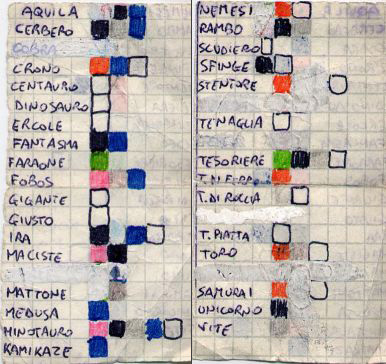 AQUILA
CERBERO
COBRA
CRONO
CENTAURO
DINOSAURO
ERCOLE
FANTASMA
FARAONE
FOBOS
GIGANTE
GIUSTO
IRA
MACISTE
MATTONE
MEDUSA
MINOTAURO
KAMIKAZE
NEMESI
RAMBO
SCUDIERO
SFINGE
STENTORE
TENAGLIA
TESORIERE
T. DI FERRO
T. DI ROCCIA
T. PIATTA
TORO
SAMURAI
UNICORNO
VITE